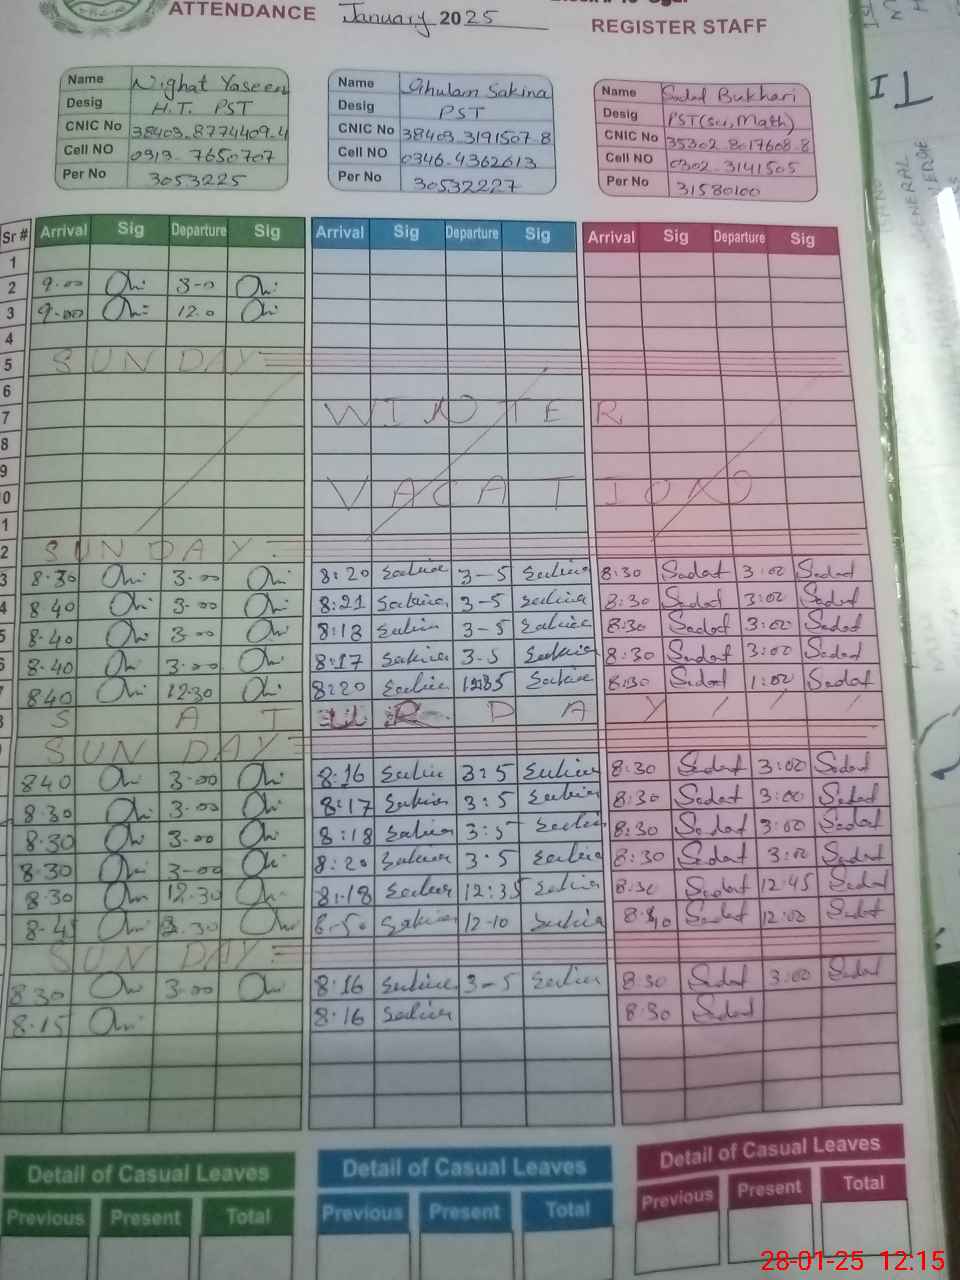 ATTENDANCE January 2025 REGISTER STAFF
Name Nighat Yaseen Name Ghulam Sakina Name Sadaf Bukhari
Desig H.T. PST Desig PST Desig PST(sci, Math)
CNIC No 38403-8774409-4 CNIC No 38403-3191507-8 CNIC No 35302-8017608-8
Cell NO 0313-7650707 Cell NO 0346-4362613 Cell NO 0302-3141505
Per No 3053225 Per No 30532227 Per No 31580100
Sr # Arrival Sig Departure Sig Arrival Sig Departure Sig Arrival Sig Departure Sig
1
2 9.00 3-0
3 9.00 12.0
4
5 SUNDAY
6
7 WINTER
8
9
0 VACATION
1
2 SUNDAY
3 8.30 3.00 8:20 Sakina 3-5 Sakina 8:30 Sadaf 3:00 Sadaf
4 8.40 3.00 8:21 Sakina 3-5 Sakina 8:30 Sadaf 3:00 Sadaf
5 8.40 3.00 8:18 Sakina 3-5 Sakina 8:30 Sadaf 3:00 Sadaf
6 8.40 3.00 8:17 Sakina 3-5 Sakina 8:30 Sadaf 3:00 Sadaf
7 840 12.30 8:20 Sakina 12:35 Sakina 8:30 Sadaf 1:00 Sadaf
SATURDAY
SUNDAY
840 3.00 8:16 Sakina 3:5 Sakina 8:30 Sadaf 3:00 Sadaf
8.30 3.00 8:17 Sakina 3:5 Sakina 8:30 Sadaf 3:00 Sadaf
8.30 3.00 8:18 Sakina 3:5 Sakina 8:30 Sadaf 3:00 Sadaf
8.30 3.00 8:20 Sakina 3.5 Sakina 8:30 Sadaf 3:00 Sadaf
8.30 12.30 8:18 Sakina 12:35 Sakina 8:30 Sadaf 12:45 Sadaf
8.45 .30 8-50 Sakina 12-10 Sakina Sadaf 12:00 Sadaf
SUNDAY
830 3.00 8:16 Sakina 3-5 Sakina 8:30 Sadaf 3:00 Sadaf
8.15 8:16 Sakina 8:30 Sadaf
Detail of Casual Leaves Detail of Casual Leaves Detail of Casual Leaves
Previous Present Total Previous Present Total Previous Present Total
28-01-25 12:15